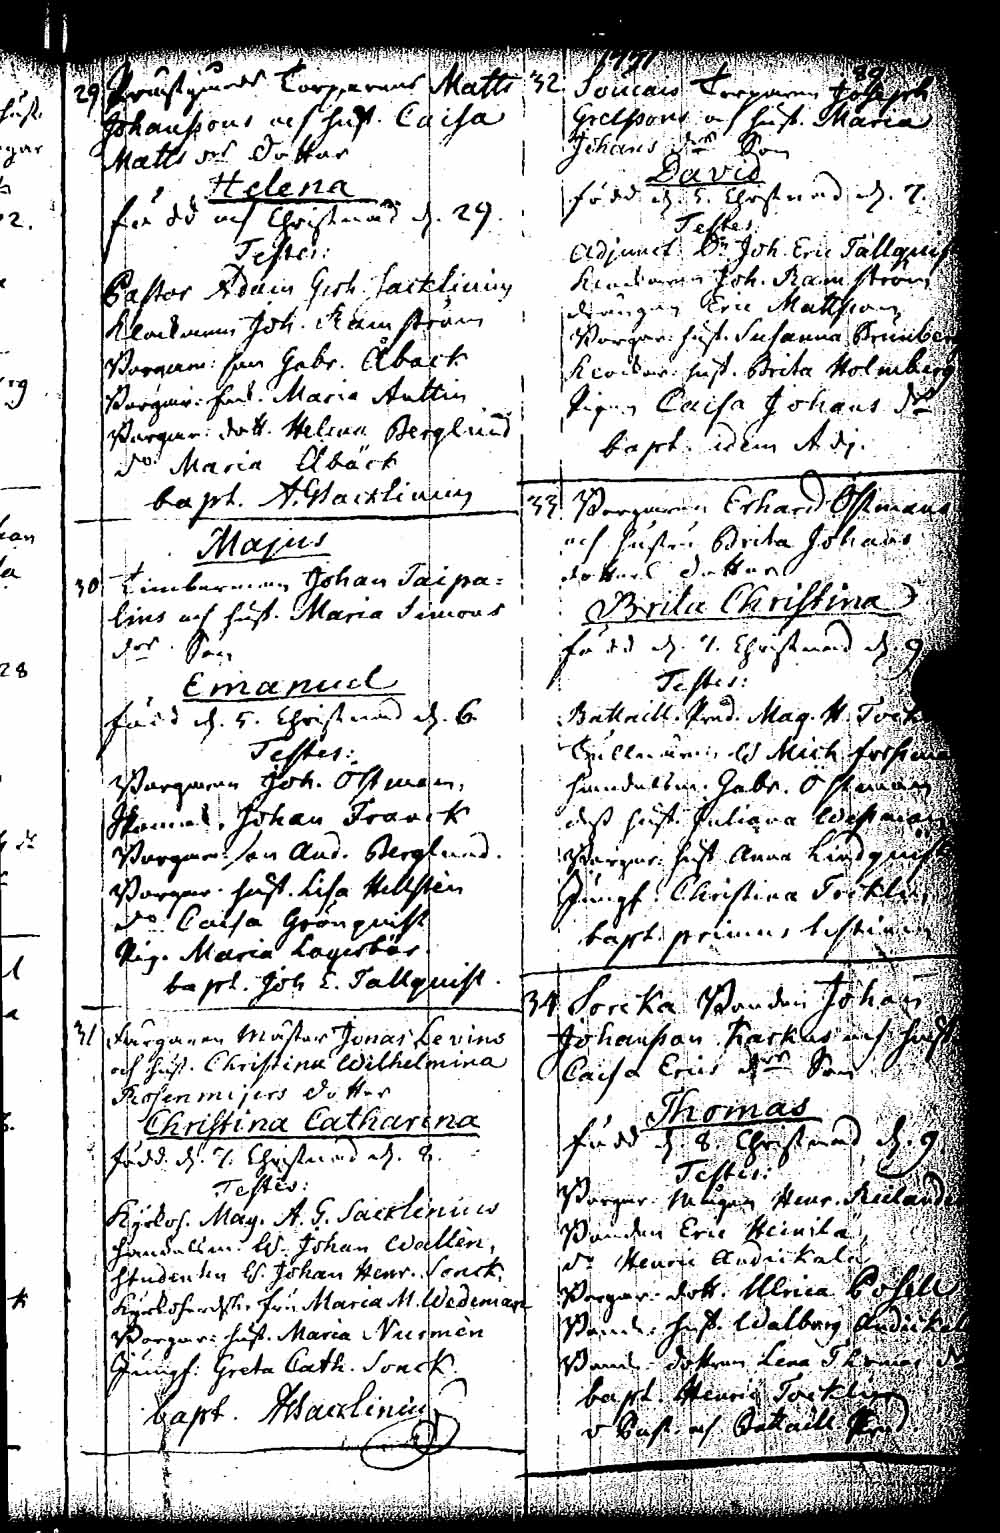 29 Torparens Matts
Johanssons och hust. Caisa
Matts dr dotter
Helena
född och Christnad d. 29.
Testes:
Pastor Adam Gish. Sacklinius
Klockaren Joh. Ramström
Borgare: son Gabr. Åback
Borgar: hust. Maria Anttin
Borgar: dott. Helena Berglund
do Maria Åbäck
bapt. A. G. Sacklinius
Majus
30 Timberman Johan Taipa=
lins och hust. Maria Simons
dr Son
Emanuel
född d. 5. Christnad d. 6.
Testes:
Borgaren Joh. Östman,
Johan Franck
Borgare: son And. Berglund.
Borgar. hust. Lisa Hellsten
do Caisa Grönquist
Pig. Maria Lagerbär.
bapt. Joh. E. Tallquist.
31 Färgaren Mäster Jonas Levins
och hust. Christina Wilhelmina
Rosenmejers dotter
Christina Catharina
född d. 7. Christnad d. 8.
Testes:
Kyrkoh. Mag. A. G. Sacklinius
Handelsm. W. Johan Wallen,
Studenten W. Johan Henr. Sonck.
Kyrkoherdsk. fru Maria M. Wedeman
Borgar: hust. Maria Nurmèn
Jungf: Greta Cath. Sonck.
bapt. A G Sacklinius
1791
89.
32. Torparen Joseph
Grelssons och hust. Maria
Johans dr Son
David
född d. 5. Christnad d. 7.
Testes:
Adjunct. Dn Joh. Eric Tallquist
Klockaren Joh. Ramström
drängen Eric Mattsson
Borgar: hust. Susanna Brunberg
Klockar: hust. Brita Holmberg
Pigan Caisa Johans dr
bapt. idem Adj.
33 Borgaren Erhard Östmans
och hustru Brita Johans
dotters dotter
Brita Christina
född d. 7. Christnad d. 9
Testes:
Bataill. Pred. Mag. H.
Tullnären W Mich. Forsman
Handelsm. Gabr. Östman
dess hust. Juliana Westman
Borgar: hust Anna Lindquist
Jungf. Christina Tocklin
bapt. primus testium
34 Sorcka Bonden Johan
Johansson Karkus och hust.
Caisa Erics drs Son
Thomas
född d. 8. Christnad d. 9
Testes:
Borgar: Henr.
Bonden Eric Heinila,
do Henric Andickala
Borgar: dott. Ulrica
Bond: hust. Walborg Andickala
Bond: dottren Lena Thomas dr
bapt. Henric Tocklin
v Past. och Bataill Pred.